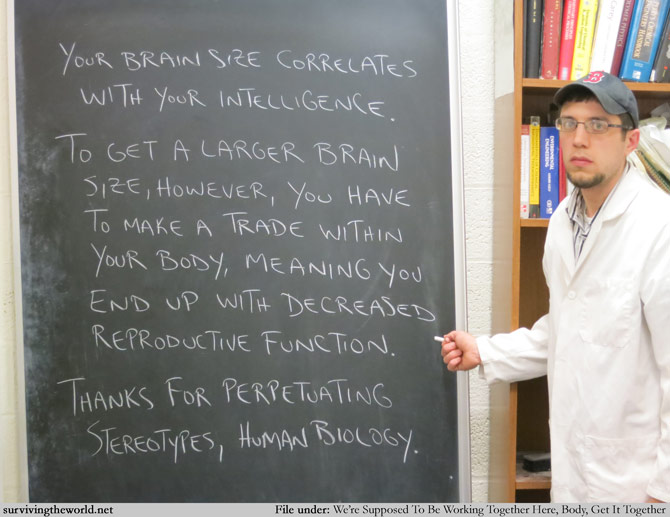 YOUR BRAIN SIZE CORRELATES
WITH YOUR INTELLIGENCE.
TO GET A LARGER BRAIN
SIZE, HOWEVER, YOU HAVE
TO MAKE A TRADE WITHIN
YOUR BODY, MEANING YOU
END UP WITH DECREASED
REPRODUCTIVE FUNCTION.
THANKS FOR PERPETUATING
STEREOTYPES, HUMAN BIOLOGY.
survivingtheworld.net
File under: We're Supposed To Be Working Together Here, Body, Get It Together